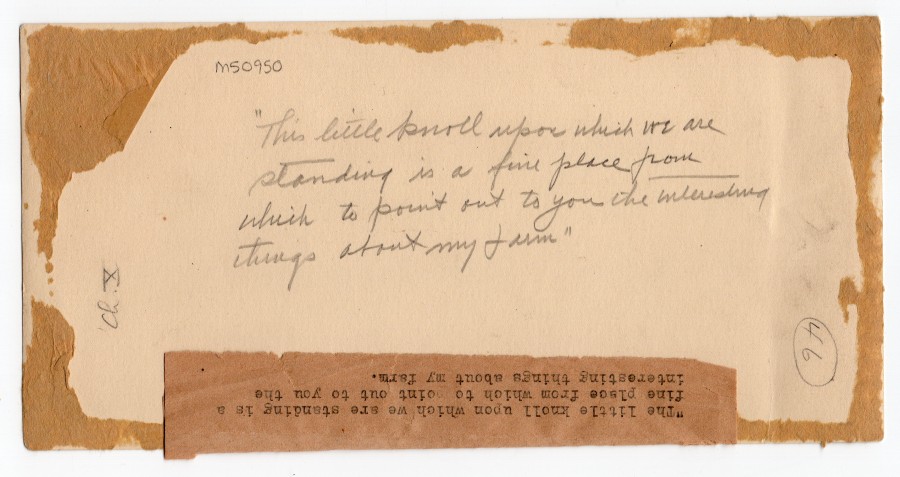 M50950
"This little knoll upon which we are
standing is a fine place from
which to point out to you the interesting
things about my farm"
Ch. X
46
"The little knoll upon which we are standing is a
fine place from which to point out to you the
interesting things about my farm.